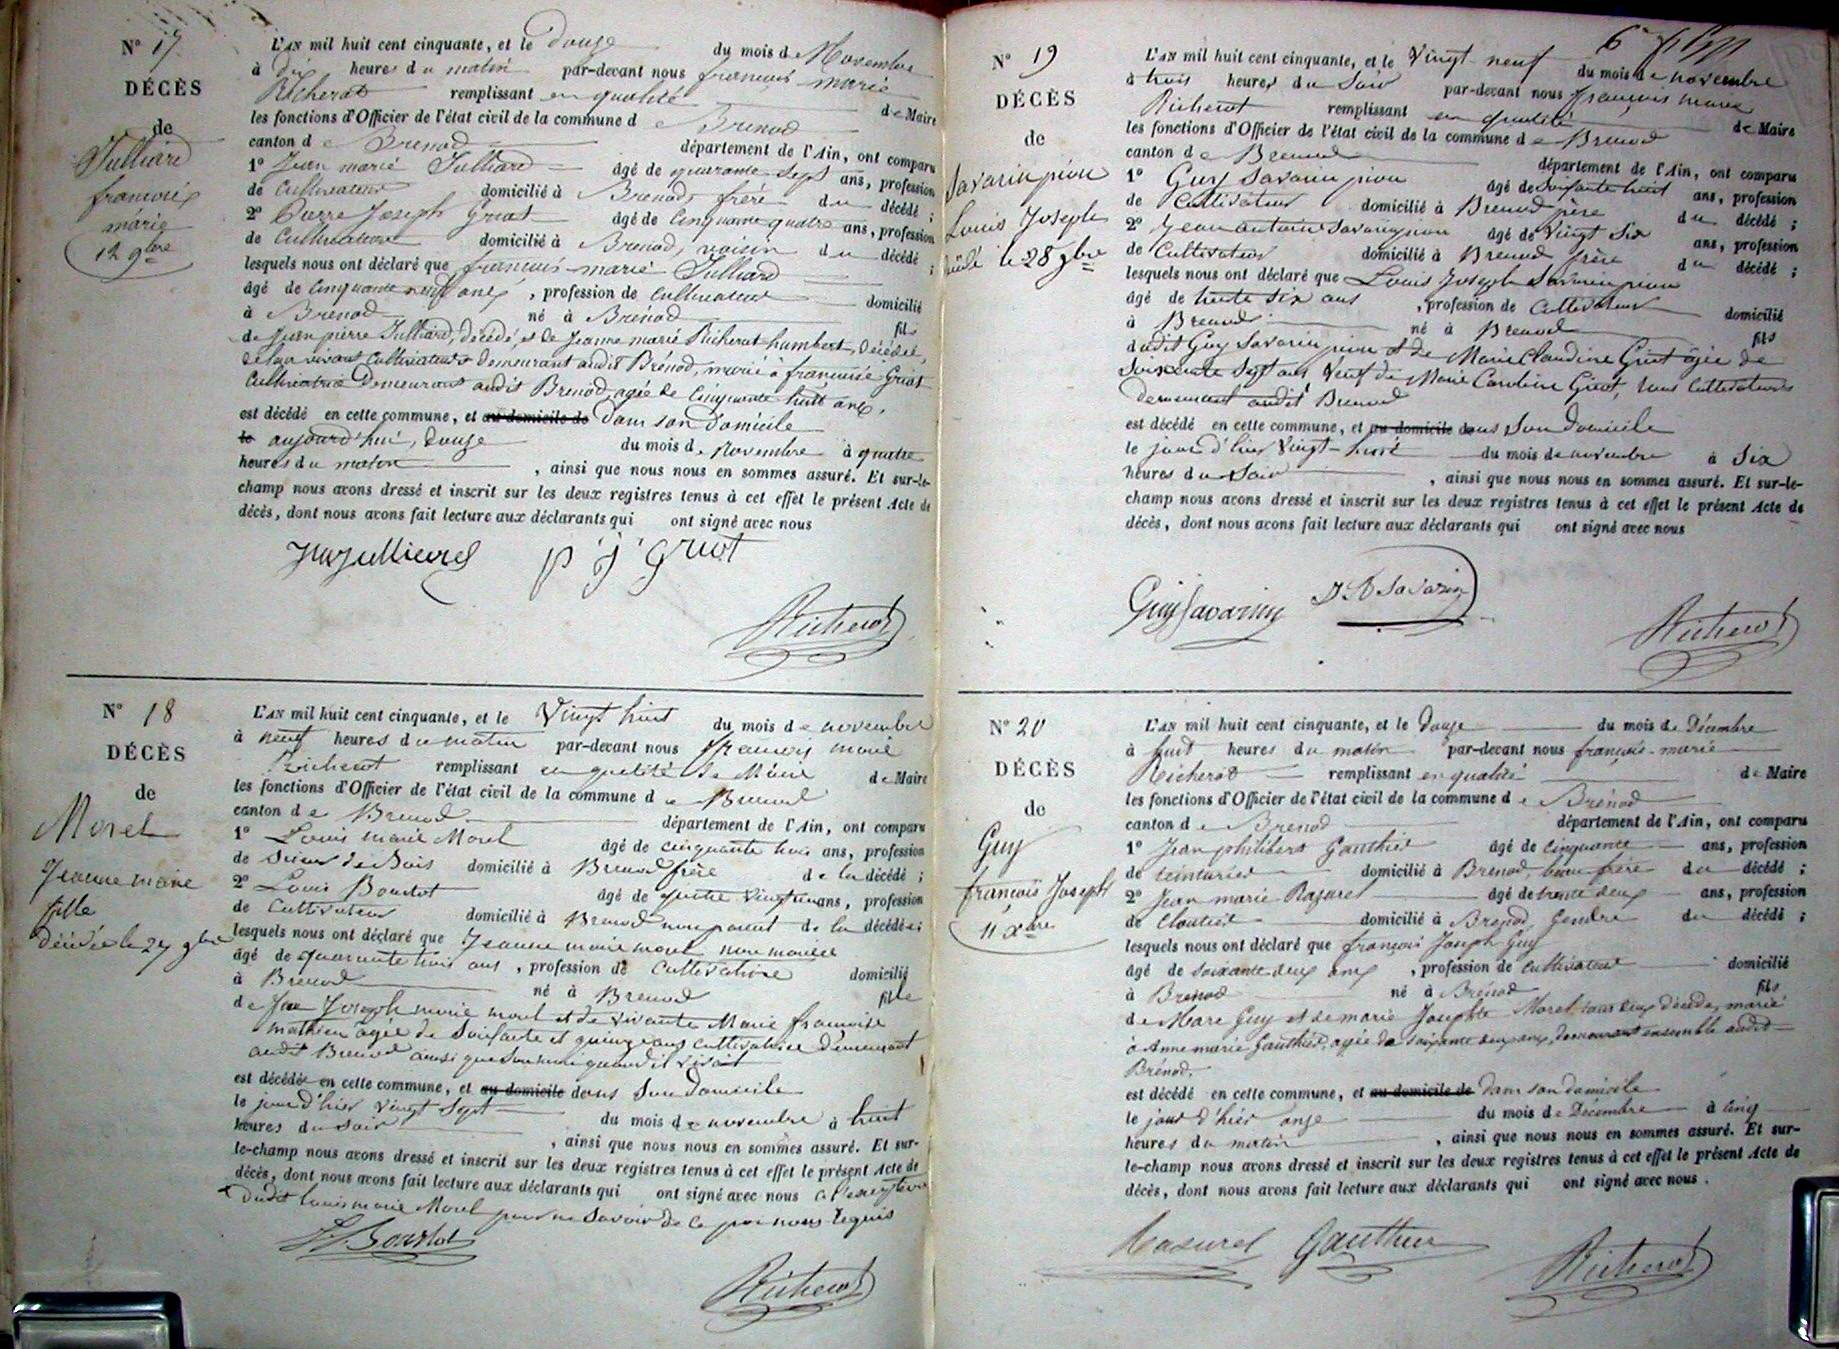 N° 17
DÉCÈS
de
Julliard
françois
marie
12 9bre
L'AN mil huit cent cinquante, et le douze du mois de Novembre
à dix heures du matin par-devant nous françois marie
Richerot remplissant en qualité de Maire
les fonctions d'Officier de l'état civil de la commune de Brenod
canton de Brenod département de l'Ain, ont comparu
1° Jean marie Julliard âgé de quarante sept ans, profession
de Cultivateur domicilié à Brenod, frère du décédé ;
2° Pierre Joseph Griot âgé de Cinquante quatre ans, profession
de Cultivateur domicilié à Brenod, voisin du décédé ;
lesquels nous ont déclaré que françois-marie Julliard
âgé de Cinquante neuf ans, profession de Cultivateur domicilié
à Brenod né à Brenod fils
de Jean pierre Julliard, décédé, et de Jeanne marie Richerot humbert, Décédée,
de leur vivant Cultivateurs demeurant audit Brénod, marié à françoise Griot
Cultivatrice Demeurant audit Brenod, agée de Cinquante huit ans,
est décédé en cette commune, et au domicile de Dans son Domicile
le aujourd'hui, Douze du mois de Novembre à quatre
heures du matin, ainsi que nous nous en sommes assuré. Et sur-le-
champ nous avons dressé et inscrit sur les deux registres tenus à cet effet le présent Acte de
décès, dont nous avons fait lecture aux déclarants qui ont signé avec nous
p j Griot
Richerot
N° 18
DÉCÈS
de
Morel
Jeanne marie
fille
Décédée le 27 9bre
L'AN mil huit cent cinquante, et le Vingt huit du mois de novembre
à neuf heures du matin par-devant nous françois marie
Richerot remplissant en qualité de Maire de Maire
les fonctions d'Officier de l'état civil de la commune de Brenod
canton de Brenod département de l'Ain, ont comparu
1° Louis marie Morel âgé de cinquante trois ans, profession
de Scieur de Bois domicilié à Brenod frère de la décédé ;
2° Louis Bourtot âgé de quatre vingt un ans, profession
de Cultivateur domicilié à Brenod non parent de la décédée ;
lesquels nous ont déclaré que Jeanne marie morel non mariée
âgé de quarante trois ans, profession de Cultivatrice domicilié
à Brenod né à Brenod fille
de Joseph marie morel et de vivante Marie françoise
mathieu agée de Soixante et quinze ans cultivatrice demeurant
audit Brenod ainsi que son mari quand il vivait
est décédée en cette commune, et au domicile dans son Domicile
le jour d'hier vingt Sept du mois de novembre à huit
heures du soir, ainsi que nous nous en sommes assuré. Et sur-
le-champ nous avons dressé et inscrit sur les deux registres tenus à cet effet le présent Acte de
décès, dont nous avons fait lecture aux déclarants qui ont signé avec nous a l'exception
Dudit Louis marie Morel pour ne Savoir de ce par nous Requis
Richerot
N° 19
DÉCÈS
de
Savarin pion
Louis Joseph
le 28 9bre
L'AN mil huit cent cinquante, et le Vingt neuf du mois de novembre
à trois heures du Soir par-devant nous françois marie
Richerot remplissant en qualité de Maire
les fonctions d'Officier de l'état civil de la commune de Brenod
canton de Brenod département de l'Ain, ont comparu
1° Guy Savarin pion âgé de Soixante huit ans, profession
de Cultivateur domicilié à Brenod père du décédé ;
2° Jean antoine Savarin pion âgé de Vingt Six ans, profession
de Cultivateur domicilié à Brenod frère du décédé ;
lesquels nous ont déclaré que Louis Joseph Savarin pion
âgé de trente Six ans, profession de Cultivateur domicilié
à Brenod né à Brenod fils
dudit Guy Savarin pion et de Marie Claudine Griot âgée de
Soixante Sept ans Veuf de Marie Caroline Griot, tous Cultivateurs
demeurant audit Brenod
est décédé en cette commune, et au domicile dans Son Domicile
le jour d'hier Vingt-huit du mois de novembre à Six
heures du Soir, ainsi que nous nous en sommes assuré. Et sur-le-
champ nous avons dressé et inscrit sur les deux registres tenus à cet effet le présent Acte de
décès, dont nous avons fait lecture aux déclarants qui ont signé avec nous
Guy Savarin J A Savarin
Richerot
N° 20
DÉCÈS
de
Guy
françois Joseph
11 Xbre
L'AN mil huit cent cinquante, et le Douze du mois de Décembre
à huit heures du matin par-devant nous françois-marie
Richerot remplissant en qualité de Maire
les fonctions d'Officier de l'état civil de la commune de Brénod
canton de Brenod département de l'Ain, ont comparu
1° Jean philibert Gauthier âgé de Cinquante ans, profession
de teinturier domicilié à Brenod, beau frère du décédé ;
2° Jean marie Rasurel âgé de trente deux ans, profession
de Cloutier domicilié à Brenod, Gendre du décédé ;
lesquels nous ont déclaré que françois Joseph Guy
âgé de soixante deux ans, profession de Cultivateur domicilié
à Brenod né à Brénod fils
de Marc Guy et de marie Josephte Morel tous deux décédés, marié
à Anne marie Gauthier, agée de soixante deux ans, demeurant ensemble audit
Brénod.
est décédé en cette commune, et au domicile de Dans son domicile
le jour d'hier onze du mois de Décembre à Cinq
heures du matin, ainsi que nous nous en sommes assuré. Et sur-
le-champ nous avons dressé et inscrit sur les deux registres tenus à cet effet le présent Acte de
décès, dont nous avons fait lecture aux déclarants qui ont signé avec nous.
Rasurel Gauthier
Richerot